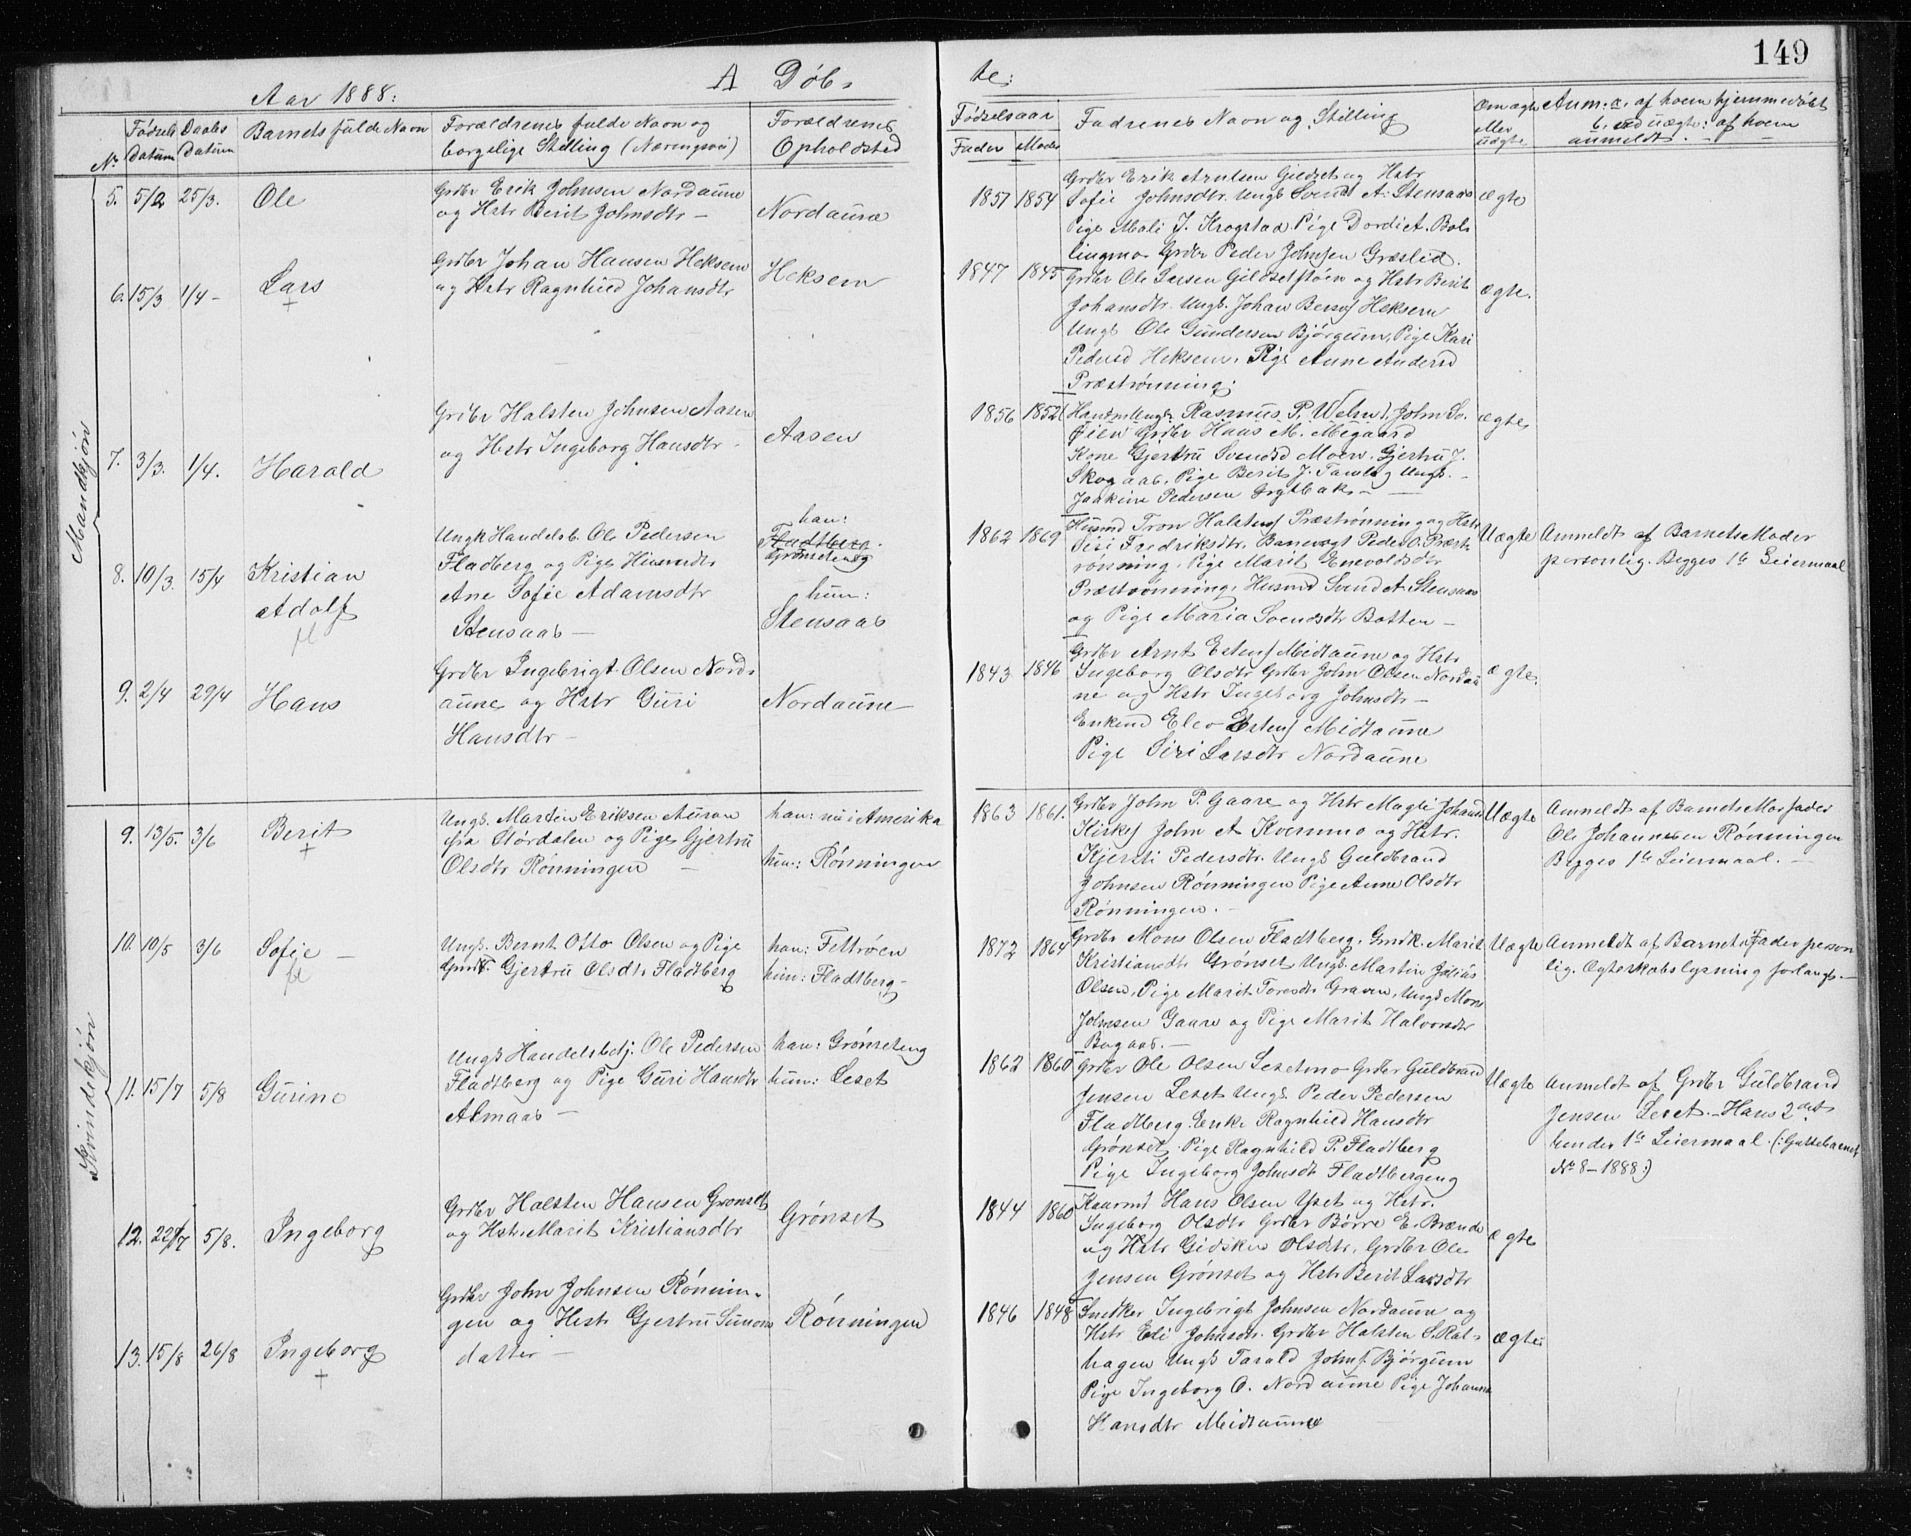 149
Aar 1888:
A Døb-
te:
No
Fødsels Datum
Daabs Datum
Barnets fulde Navn
Forældrenes fulde Navn og
borgelige Stilling (Næringsvei)
Forældrenes
Opholdsted
Fødselsaar
Fader Moder
Fadrenes Navn og Stilling
Om ægte
eller
uægte
Anm: a. af hvem hjemmedøbt
b. ved uægte: af hvem
anmeldt. —
Mandkjøn
5. 5/2 25/3. Ole
Grdbr Erik Johnsen Nordaune
og Hstr Berit Johnsdtr —
Nordaune
1851 1854
Grdbr Erik Arntsen Gildset og Hstr
Sofie Johnsdtr. Ungk Svend A. Stensaas
Pige Mali J. Krogstad. Pige Dordi A. Bol-
lingmo. Grdbr Peder Johnsen Græslid.
ægte
6. 15/3 1/4 - Lars
+
Grdbr Johan Hansen Heksem
og Hstr Ragnhild Johansdtr
Heksem
1847 1845
Grdbr Ole Larsen Gildsetstøen og Hstr Berit
Johansdtr. Ungk. Johan Bersvs Heksem
Ungk Ole Gundersen Bjørgum, Pige Kari
Pedersd Heksem. Pige Anne Andersd
Præstrønning.
ægte.
7. 3/3. 1/4. Harald
Grdbr Halsten Johnsen Aasen
og Hstr Ingeborg Hansdtr -
Aasen
1856 1852
Rasmus P. Welve, John So.
Øien Grdbr Hans M. Møgaard
Kone Gjertru Svendsd Moen. Gjertru J.
Skogaas. Pige Berit J. Ungk.
Joakim Pedersen
ægte
8. 10/3. 15/4 Kristian
Adolf
Ungk Handelsb. Ole Pedersen
Fladberg og Pige Husmdtr
Ane Sofie Adamsdtr
Stensaas —
han:
Fladtberg.
Grønseteng
hun:
Stensaas
1862 1869
Husmd Tron Halstens Præstrønning og Hstr
Sisi Fredriksdtr. Banevogt Peder O. Præst-
rønning. Pige Marit Enevoldsdtr
Præstrønning, Husmd Svend A. Stensaas
og Pige Maria Svendsdtr Botten —
Uægte
Anmeldt af Barnets Moder
personlig. Begges 1ste Leiermaal
9. 2/4 29/4 Hans
Grdbr Ingebrigt Olsen Nord-
aune og Hstr Guri
Hansdtr —
Nordaune
1843 1846
Grdbr Arnt Estens Midtaune og Hstr
Ingeborg Olsdtr Grdbr John Olsen Nordau
ne og Hstr Ingeborg Johnsdtr —
Enkemd Elev Estens Midtaune
Pige Siri Larsdtr Nordaune
ægte.
Kvindekjøn
9. 13/5. 3/6 Berit
+
Ungk. Martin Eriksen Auran
fra Størdalen og Pige Gjertru
Olsdtr Rønningen —
han: nu i Amerika
hun: Rønningen
1863 1861.
Grdbr John P. Gaare og Hstr Magli Johand
Kirkes John A Kvernmo og Hstr.
Kjersti Pedersdtr. Ungk Guldbrand
Johnsen Rønningen Pige Anne Olsdtr
Rønningen. —
Uægte
Anmeldt af Barnets Morfader
Ole Johannesen Rønningen
Begges 1ste Leiermaal. —
10. 10/5 3/6 Sofie —
Ungk. Bernt Otto Olsen og Pige
Gjertru Olsdtr Fladberg
han: Fettrøen
hun: Fladtberg
1872 1864
Grdbr Mons Olsen Fladtberg, Marit
Kristiansdtr Grønset Ungk. Martin Julius
Olsen, Pige Marit Toresdtr Graven, Ungk Mons
Johnsen Gaare og Pige Marit Halvorsdtr
Bogaas. —
Uægte
Anmeldt af Barnets Fader person
lig. Ægteskabslysning forlangt. —
11. 15/7 5/8 Gurine
Ungk Handelsbetj. Ole Pedersen
Fladtberg og Pige Guri Hansdtr
Almaas —
han: Grønseteng
hun: Leset
1862 1860
Grdbr Ole Olsen Lesetmo Grdbr Guldbrand
Jensen Leset Ungk Peder Pedersen
Fladtberg. Enke Ragnhild Hansdtr
Grønset. Pige Ragnhild P. Fladtberg
Pige Ingeborg Johnsdtr Fladtbergeng
Uægte
Anmeldt af Grdbr Guldbrand
Jensen Leset. — Hans 2det
hendes 1ste Leiermaal. (: Guttebarnet
No 8 - 1888:)
12. 22/7 5/8. Ingeborg
Grdbr Halsten Hansen Grønset
og Hstr Marit Kristiansdtr
Grønset
1844 1860
Kaarmd Hans Olsen Yset og Hstr.
Ingeborg Olsdtr Grdbr Børre E. Brænde
og Hstr Gidsken Olsdtr. Grdbr Ole
Jensen Grønset og Hstr Berit Larsdtr
ægte
13. 15/8 26/8 Ingeborg
+
Grdbr John Johnsen Rønnin-
gen og Hstr Gjertru Simons
datter —
Rønningen
1846 1848
Snedker Ingebrigt Johnsen Nordaune og
Hstr Eli Johnsdtr. Grdbr Halsten S. Rat-
hagen Ungk Tarald Johns. Bjørgum
Pige Ingeborg O. Nordaune Pige Johanna
Hansdtr Midtaune
ægte